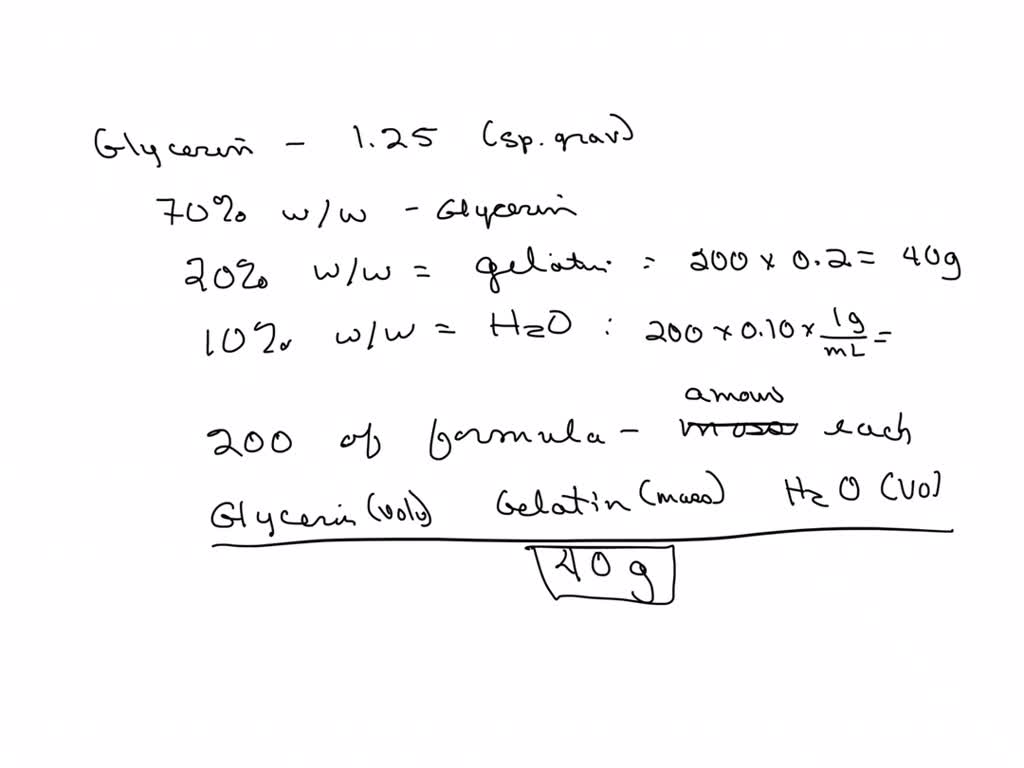 Glycerin - 1.25 (sp. grav)
70% w/w - Glycerin
20% w/w = gelatin : 200 x 0.2 = 40g
10% w/w = H2O : 200 x 0.10 x 1g/mL =
amoun
200 of formula - mass each
Glycerin (volu) Gelatin (mass) H2O (vol)
40 g